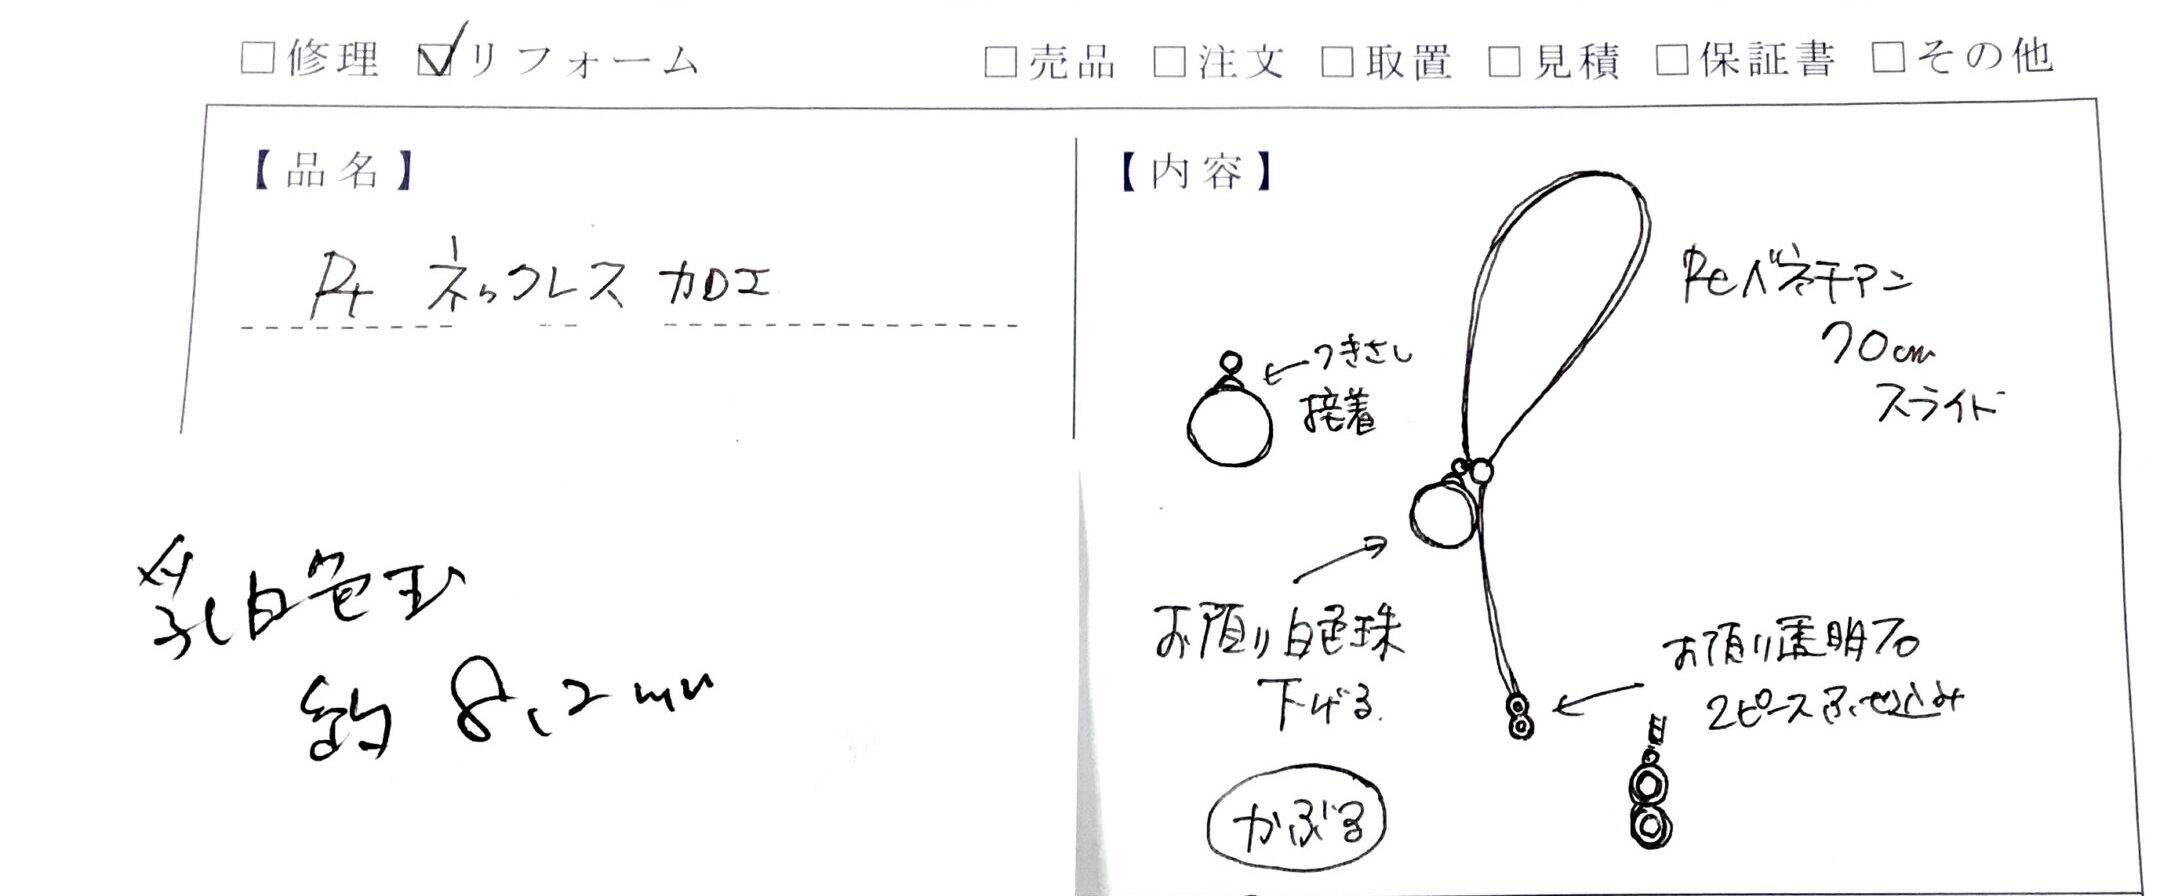 □修理 ☑リフォーム □売品 □注文 □取置 □見積 □保証書 □その他
【品名】
Pt ネックレス加工
乳白色玉
約 8.2mm
【内容】
Ptベネチアン
70cm
スライド
←つきさし
接着
お預り白色珠
下げる
かぶる
お預り透明石
2ピースふせ込み